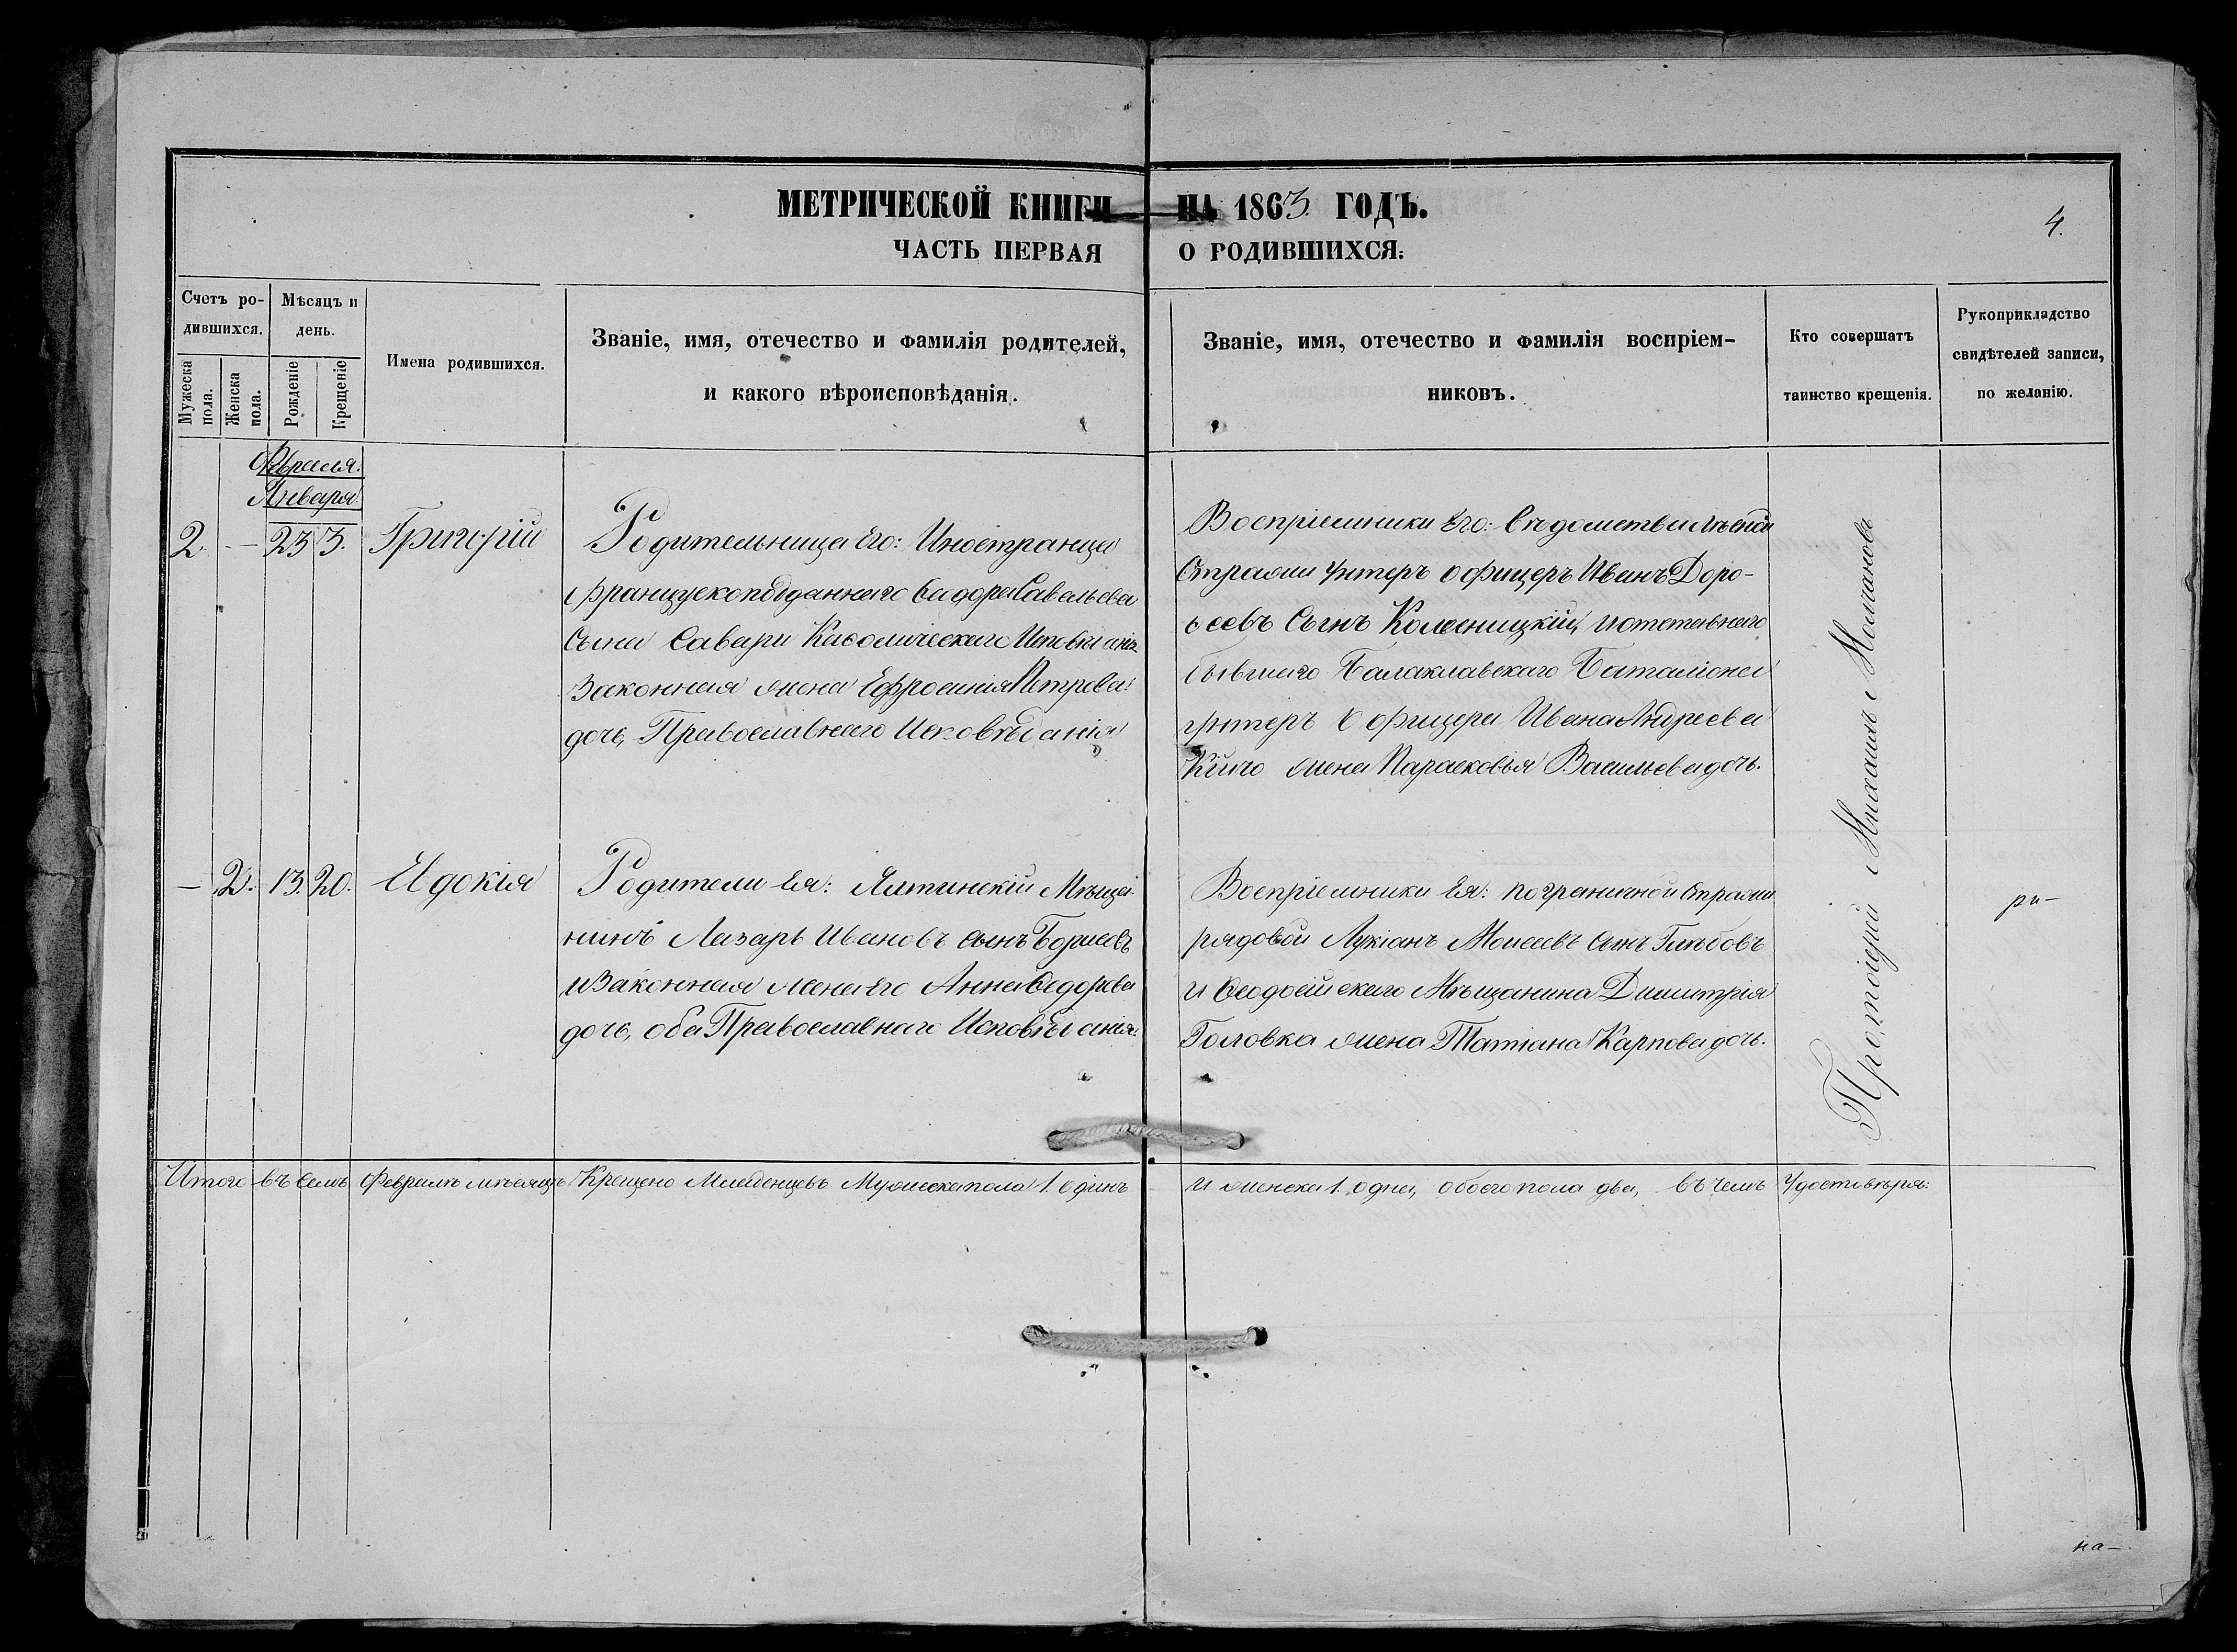 МЕТРИЧЕСКОЙ КНИГИ НА 1863 ГОДЪ.
4.
ЧАСТЬ ПЕРВАЯ О РОДИВШИХСЯ:
Счетъ ро-
дившихся.
Мужеска
пола.
Женска
пола.
Мѣсяцъ и
день.
Рожденіе
Крещеніе
Имена родившихся.
Званіе, имя, отечество и фамилія родителей,
и какого вѣроисповѣданія.
Званіе, имя, отечество и фамилія воспріем-
никовъ.
Кто совершатъ
таинство крещенія.
Рукоприкладство
свидѣтелей записи,
по желанію.
Февраля.
Января.
2. — 23 3. Григорій
Родительница Его: Иностранца
Французскоподданнаго Савельева
Сына Савари Каѳолическаго Исповѣданія
Законная жена Ефросинія Петрова
дочь, Православнаго Исповѣданія
Воспріемники Его:
Стражи Унтеръ Офицеръ Иванъ Доро-
ѳеевъ Сынъ Колесницкій, и
бывшаго Балаклавскаго Баталіона
Унтеръ Офицера Ивана Андреева
жена Парасковья Васильева дочь.
— 2. 13. 20. Евдокія
Родители Ея: Ялтинскій Мѣща-
нинъ Лазарь Ивановъ сынъ Борисовъ
и Законная жена его Анна Ѳедорова
дочь, оба Православнаго Исповѣданія.
Воспріемники Ея: пограничной Стражи
рядовой Лукіанъ Моисеевъ Сынъ Глѣбовъ
и Ѳеодосійскаго Мѣщанина Димитрія
Головка жена Татіана Карпова дочь.
Протоіерей Михаилъ
ри-
Итого въ семъ Февралѣ мѣсяцѣ Крещено Младенцевъ Мужеска пола 1. одинъ и женска 1. одна, обоего пола два, въ чемъ Удостовѣря:
на-